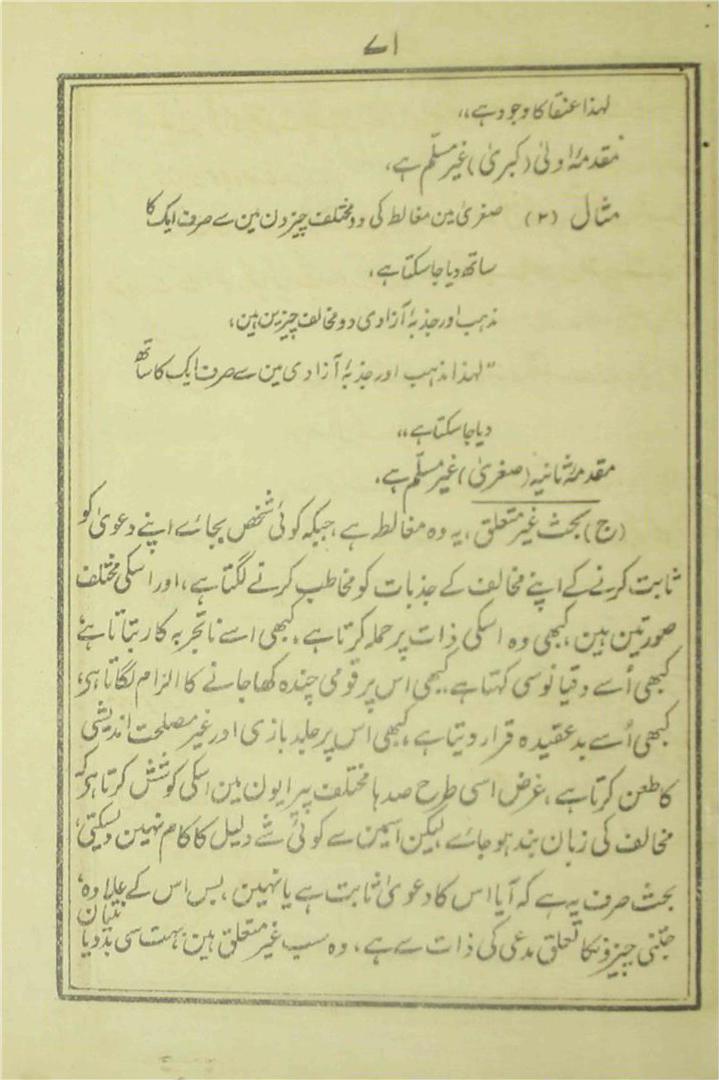 ۷۱
لہذا عنقا کا وجود ہے،،
مقدمۂ اولیٰ (کبریٰ) غیر مسلّم ہے،
مثال (۲) صغریٰ مین مغالط کی دو مختلف چیزون مین سے صرف ایک کا
ساتھ دیا جا سکتا ہے،
مذہب اور جذبۂ آزادی دو مخالف چیزین ہین،
"لہذا مذہب اور جذبۂ آزادی مین سے صرف ایک کا ساتھ
دیا جا سکتا ہے،،
مقدمۂ ثانیہ (صغریٰ) غیر مسلّم ہے.
(ج) بحث غیر متعلق، یہ وہ مغالطہ ہے، جبکہ کوئی شخص بجائے اپنے دعویٰ کو
ثابت کرنے کے اپنے مخالف کے جذبات کو مخاطب کرنے لگتا ہے، اور اسکی مختلف
صورتین ہین، کبھی وہ اسکی ذات پر حملہ کرتا ہے، کبھی اسے ناتجربہ کار بتاتا ہے،
کبھی اُسے دقیانوسی کہتا ہے، کبھی اس پر قومی چندہ کھا جانے کا الزام لگاتا ہی،
کبھی اُسے بد عقیدہ قرار دیتا ہے، کبھی اس پر جلد بازی اور غیر مصلحت اندیشی
کا طعن کرتا ہے، غرض اسی طرح صدہا مختلف پیرایون مین اسکی کوشش کرتا ہی کہ
مخالف کی زبان بند ہو جائے لیکن اسمین سے کوئی شے دلیل کا کام نہین دیسکتی،
بحث صرف یہ ہے کہ آیا اس کا دعویٰ ثابت ہے یا نہین، بس اس کے علاوہ،
جتنی چیزونکا تعلق مدعی کی ذات سے ہے، وہ سب غیر متعلق ہین، بہت سی بد دیانتیان